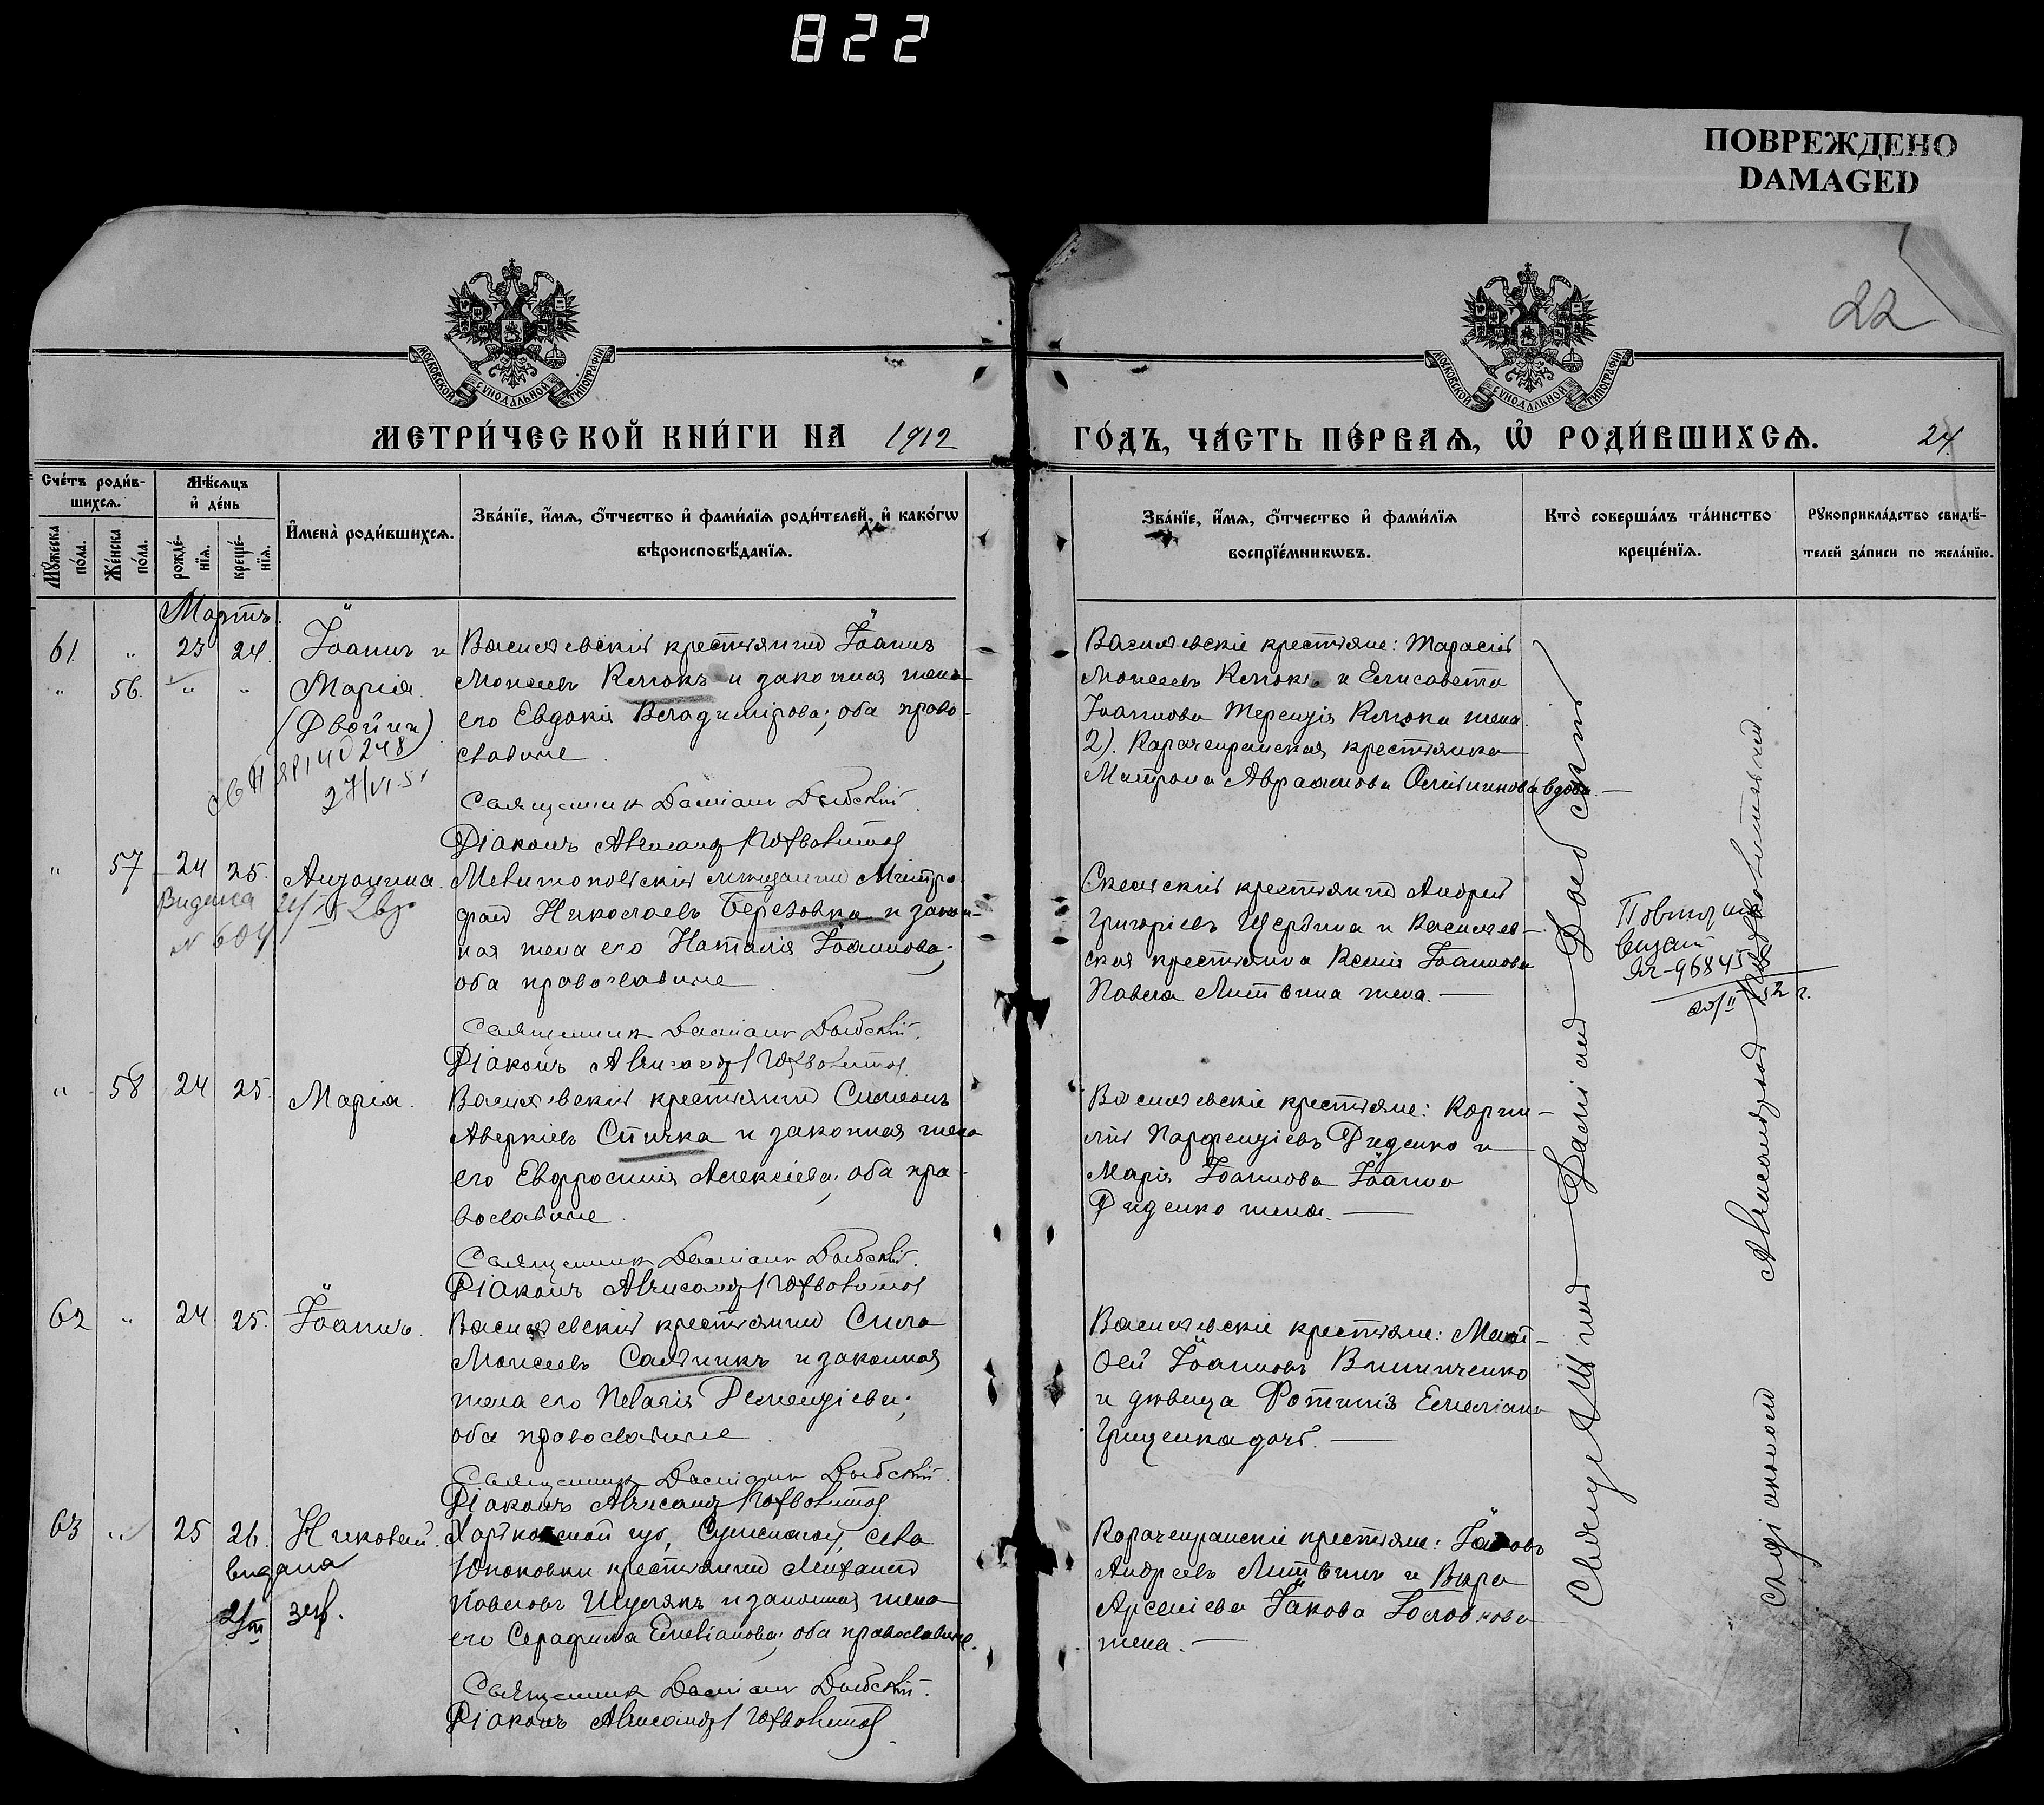 822
ПОВРЕЖДЕНО
DAMAGED
22
МОСКОВСКОЙ СУНОДАЛЬНОЙ ТИПОГРАФІИ
МОСКОВСКОЙ СУНОДАЛЬНОЙ ТИПОГРАФІИ
МЕТРИ́ЧЕСКОЙ КНИ́ГИ НА 1912
ГО́ДЪ, ЧА́СТЬ ПЕ́РВАѦ, Ѡ҆ РОДИ́ВШИХСѦ. 24.
Сче́тъ роди́в-
шихсѧ.
Мꙋ́жеска по́ла.
Же́нска по́ла.
Мѣ́сѧцъ
и҆ де́нь
рожде́-
нїѧ.
креще́-
нїѧ.
И҆мена̀ роди́вшихсѧ.
Зва́нїе, и҆́мѧ, ѻ҆́тчество и҆ фами́лїѧ роди́телей, и҆ како́гѡ
вѣроисповѣ́данїѧ.
Зва́нїе, и҆́мѧ, ѻ҆́тчество и҆ фами́лїѧ
воспрїе́мникѡвъ.
Кто̀ соверша́лъ та́инство
креще́нїѧ.
Рꙋкоприкла́дство свидѣ́-
телей за́писи по жела́нїю.
Мартъ.
61. " 23 24. Іоаннъ и
" 56. " " Марія.
(Двойни)
27/VI-51
Василевскій крестьянинъ Іоаннъ
Моисеевъ Клюкъ и законная жена
его Евдокія Владимірова; оба право-
славные.
Священникъ Даміанъ
Діаконъ Александръ
Василевскіе крестьяне: Тарасій
Моисеевъ Клюкъ и Елисавета
Іоаннова Терентія Клюки жена.
2). Карачекракская крестьянка
Матрона Авраамова вдова.
" 57 24 25. Антонина.
Видана
N 604
Мелитопольскій мѣщанинъ Митро-
фанъ Николаевъ Березовка и закон-
ная жена его Наталія Іоаннова;
оба православные.
Священникъ Даміанъ
Діаконъ Александръ
Скельскій крестьянинъ Андрей
Григоріевъ Щербина и Василев-
ская крестьянка Ксенія Іоаннова
Павла Литвина жена.
" 58 24 25. Марія.
Василевскій крестьянинъ Симеонъ
Аверкіевъ Спичка и законная жена
его Евфросинія Алексіева; оба пра-
вославные.
Священникъ Даміанъ
Діаконъ Александръ
Василевскіе крестьяне: Корни-
лій Парфентіевъ Диденко и
Марія Іоаннова Іоанна
Диденко жена.
62 " 24 25. Іоаннъ.
Василевскій крестьянинъ Сила
Моисеевъ Сальникъ и законная
жена его Пелагія Дементіева;
оба православные.
Священникъ Даміанъ
Діаконъ Александръ
Василевскіе крестьяне: Мат-
ѳей Іоанновъ Винниченко
и дѣвица Фотинія Емеліана
Гриценка дочь.
63 " 25 26. Николай.
видана
Харьковской губ, Сумского у, села
Юнаковки крестьянинъ Михаилъ
Павловъ Шумякъ и законная жена
его Серафима Емеліанова; оба православные.
Священникъ Даміанъ
Діаконъ Александръ
Карачекракскіе крестьяне: Іаковъ
Андреевъ Литвинъ и Вѣра
Арсеніева Іакова
жена.
Священникъ Даміанъ
съ діакономъ Александромъ